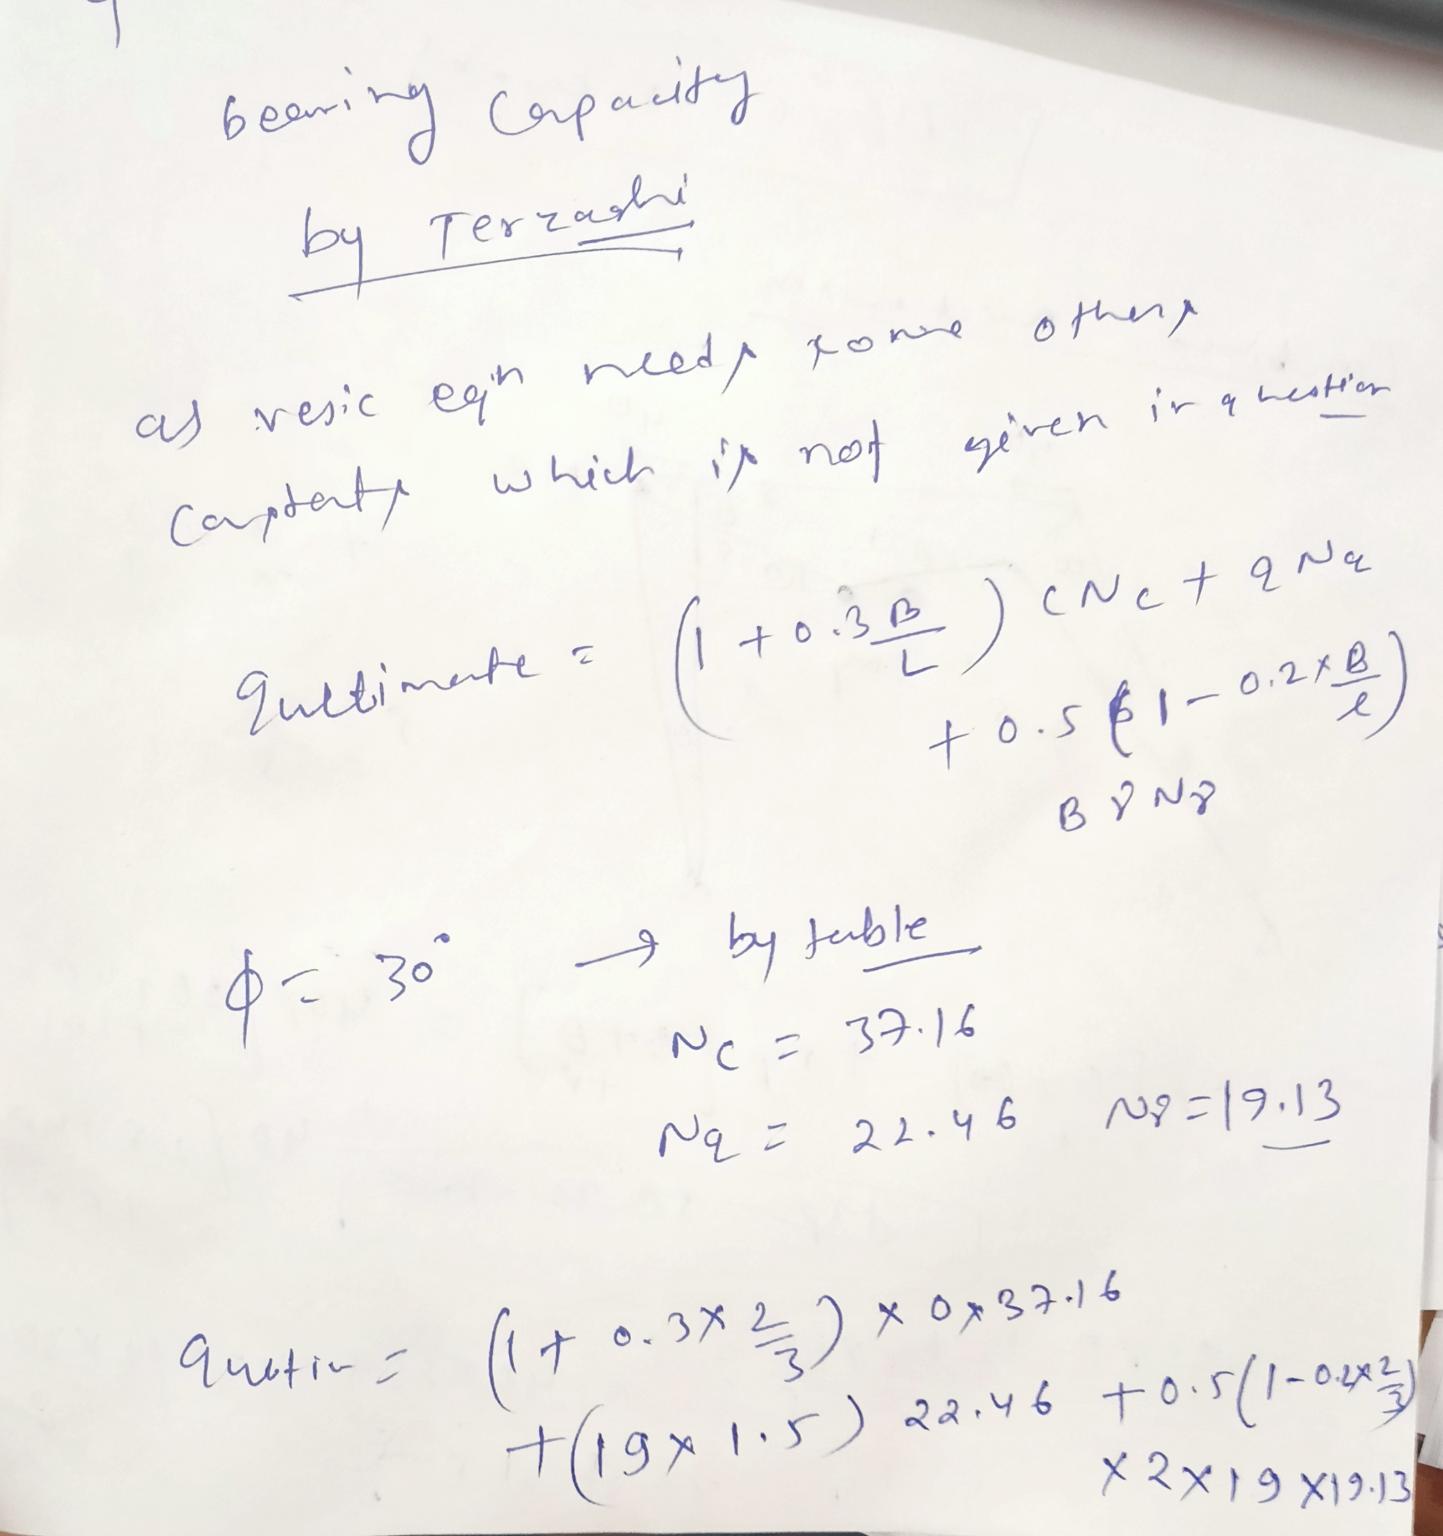 bearing Capacity
by Terzaghi
as vesic eqn needs some others
Constants which is not given in question
qultimate = (1 + 0.3 B/L) CNc + qNq
+ 0.5 (1 - 0.2 × B/L)
B γ Nγ
φ = 30° → by table
Nc = 37.16
Nq = 22.46 Nγ = 19.13
= (1 + 0.3 × 2/3) × 0 × 37.16
+ (19 × 1.5) 22.46 + 0.5 (1 - 0.2 × 2/3)
× 2 × 19 × 19.13